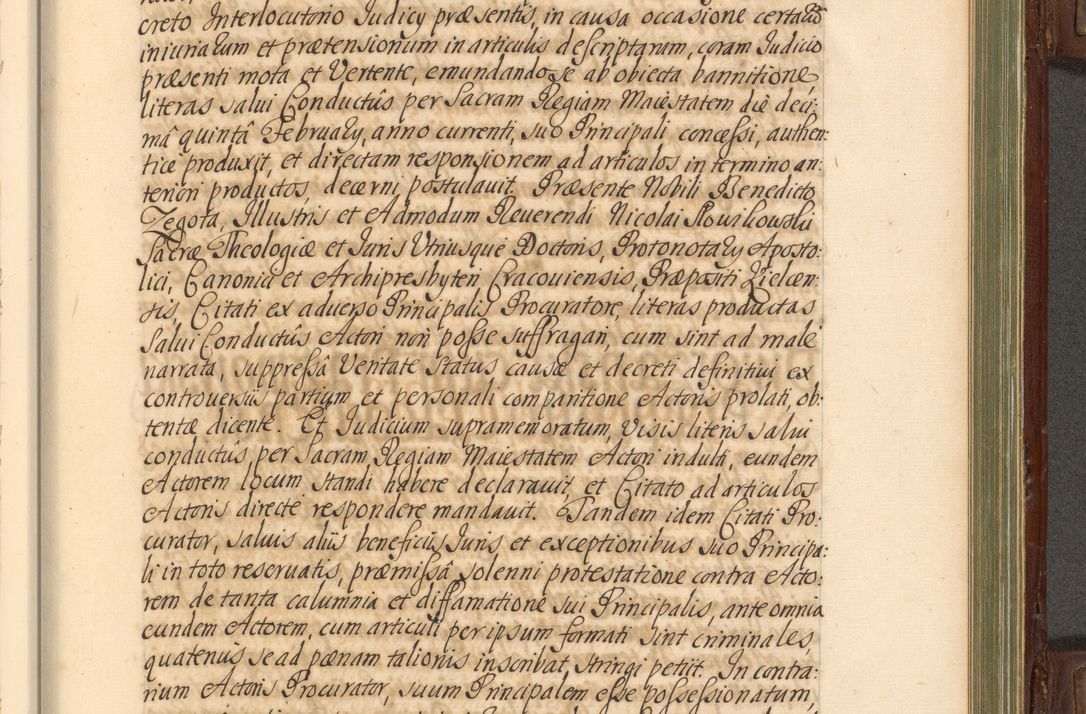 creto Interlocutorio Judicÿ præsentis, in causa occasione certarũ
iniuriarum et prætensionum in articulis descriptarum, coram Judicio
præsenti mota et Vertente, emundando se ab obiecta bannitione
literas salui Conductûs per Sacram Regiam Maiestatem die deci:
mâ quintâ Februarÿ, anno currenti, suo Principali concessi, authen:
ticè produxit, et directam responsionem ad articulos in termino an:
teriori productos, decerni postulauit. Præsente Nobili Benedicto
Zegota, Illustris et Admodum Reuerendi Nicolai Słowikowski
Sacræ Theologiæ et Juris Utriusque Doctoris, Protonotarÿ Aposto:
lici, Canonici et Archipresbyteri Cracouiensis, Præpositi Kielcen:
sis, Citati ex aduerso Principalis Procuratore, literas productas
Salui Conductûs Actori non posse suffragari, cum sint ad malè
narrata, suppressâ Veritate Status causæ et decreti definitiui ex
controuersiis partium et personali comparitione Actoris prolati, ob:
tentæ dicente. Et Judicium supramemoratum, visis literis salui
conductûs, per Sacram Regiam Maiestatem Actori indulti, eundem
Actorem locum standi habere declarauit, et Citato ad articulos
Actoris directè respondere mandauit. Tandem idem Citati Pro:
curator, saluis aliis beneficiis Juris et exceptionibus suo Principa:
li in toto reseruatis, præmissâ solenni protestatione contra Acto:
rem de tanta calumnia et diffamatione sui Principalis, ante omnia
eundem Actorem, cum articuli per ipsum formati sint criminales,
quatenus se ad pænam talionis inscribat, stringi petiit. In contra:
rium Actoris Procurator, suum Principalem esse possessionatum,